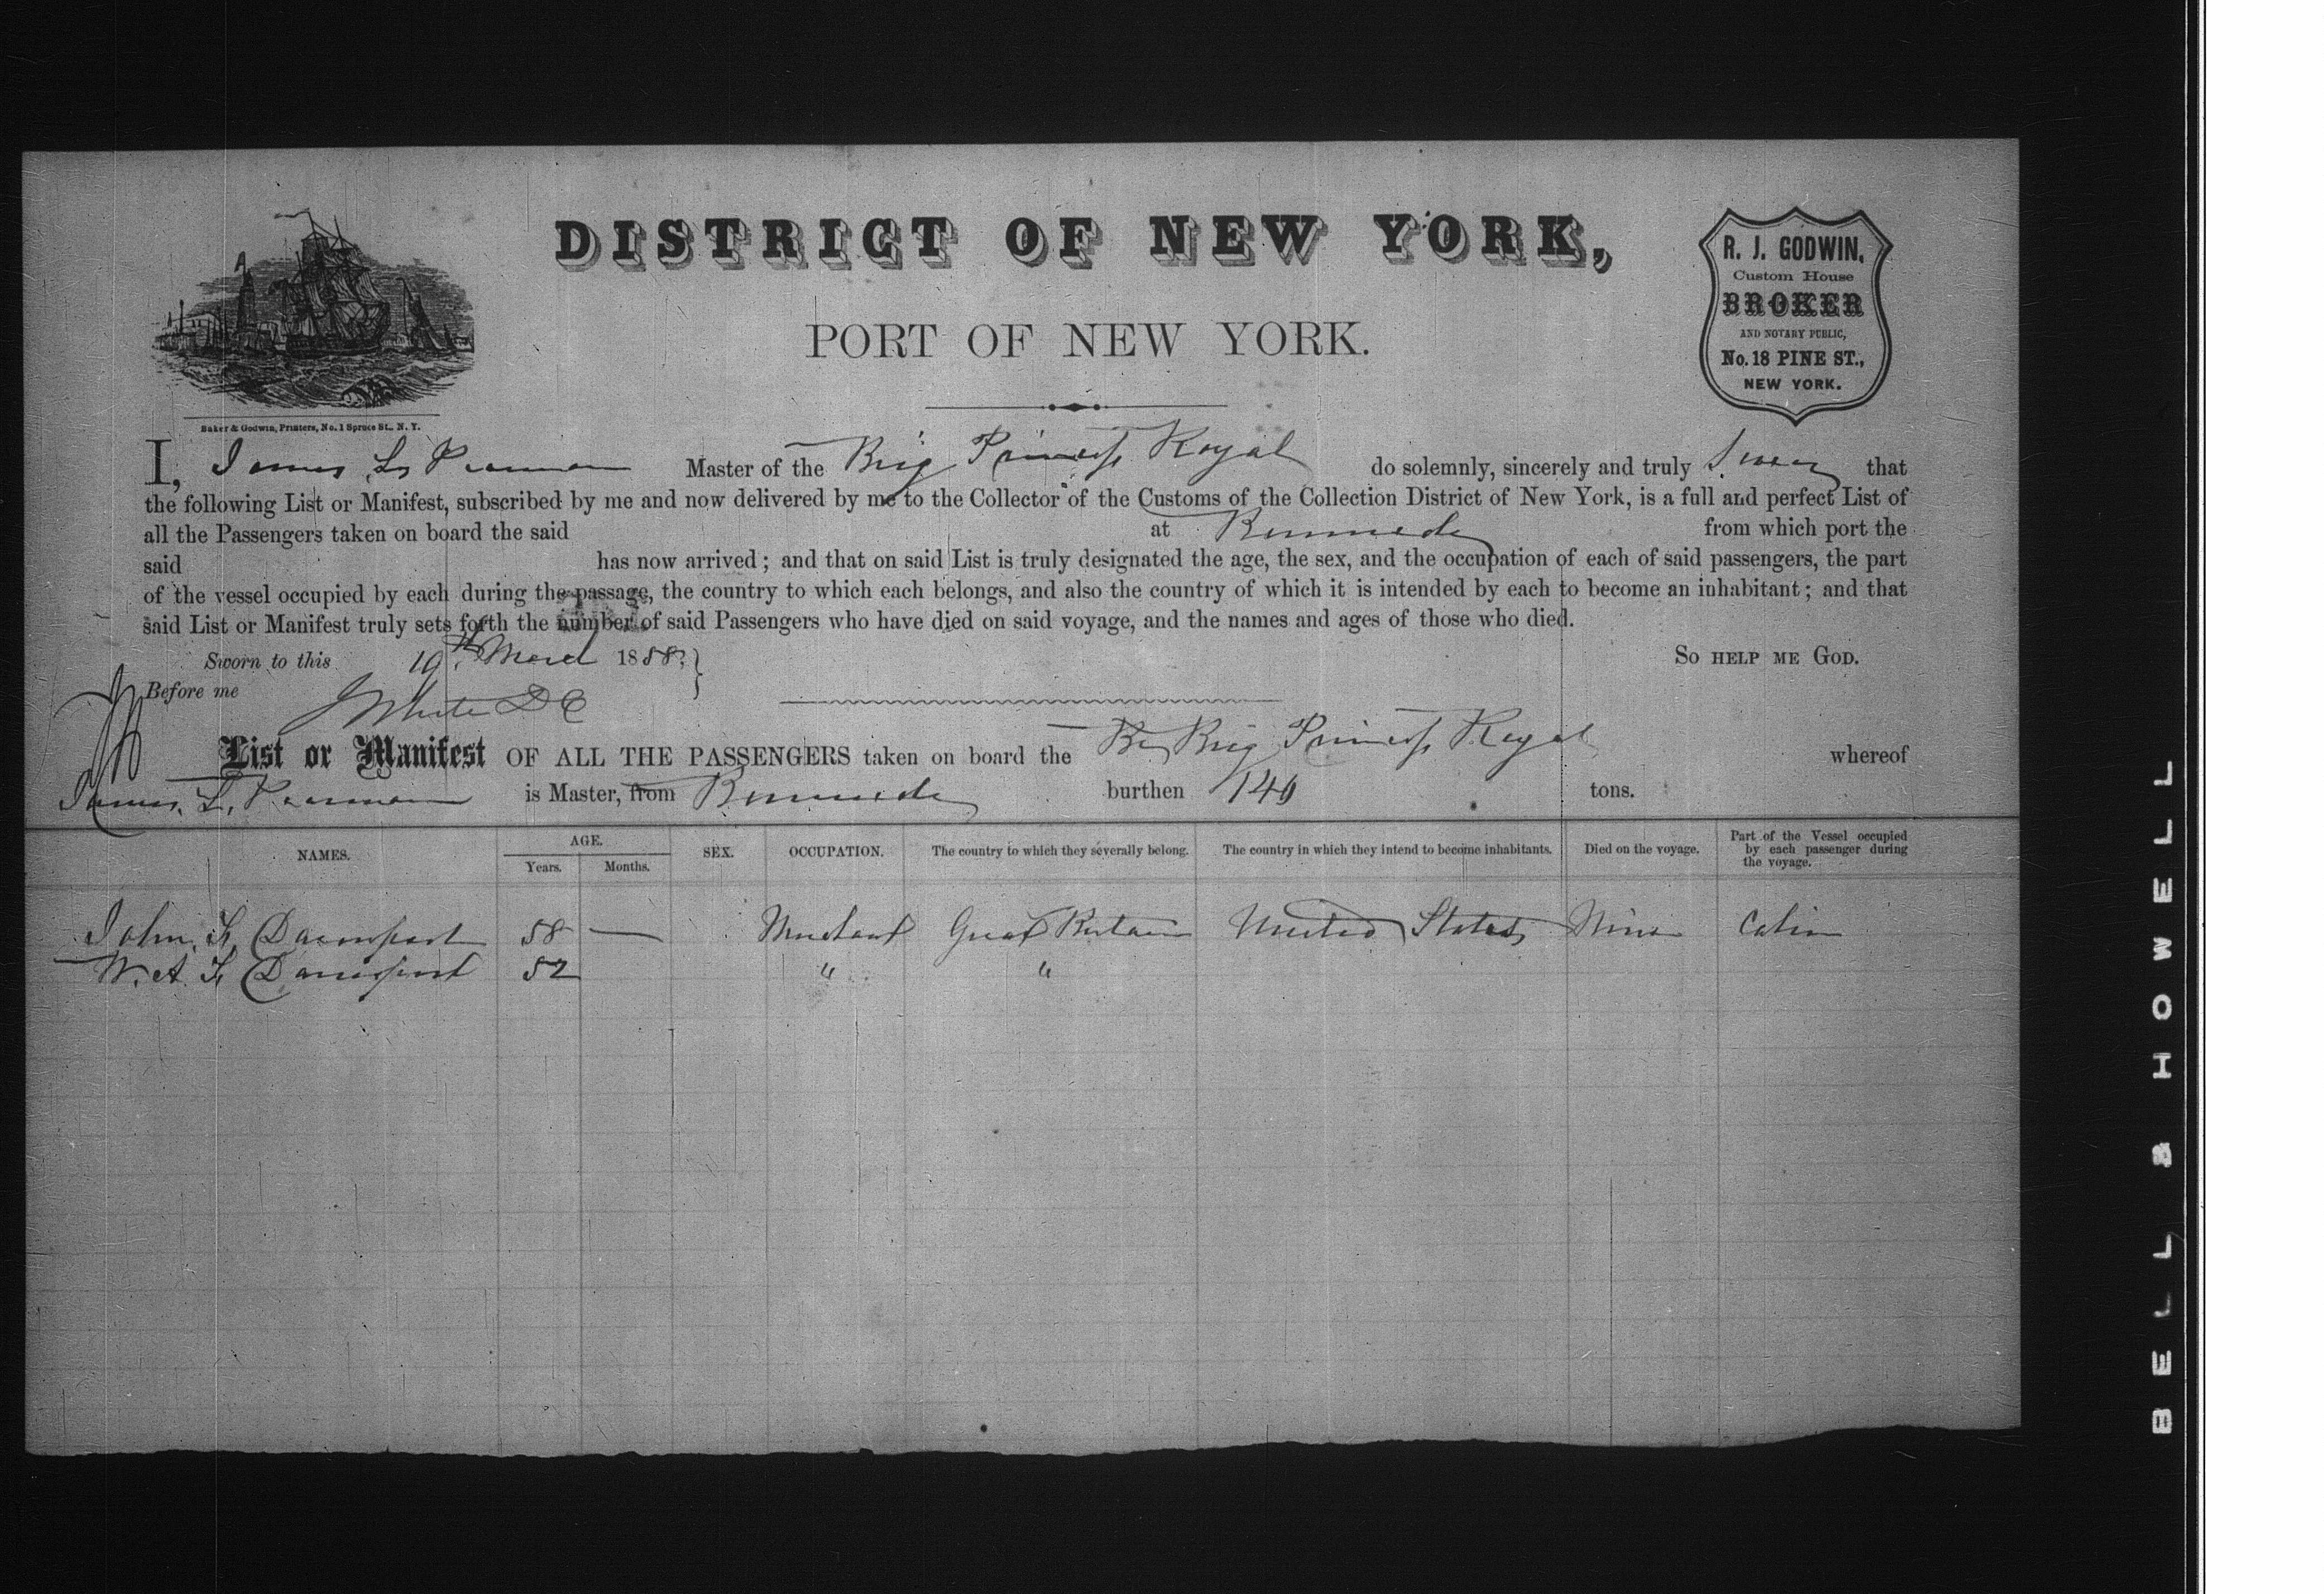 DISTRICT OF NEW YORK,
PORT OF NEW YORK.
R. J. GODWIN,
Custom House
BROKER
AND NOTARY PUBLIC,
No. 18 PINE ST.,
NEW YORK.
Baker & Godwin, Printers, No. 1 Spruce St., N. Y.
I, James L Pearman Master of the Brig Princess Royal do solemnly, sincerely and truly Swear that
the following List or Manifest, subscribed by me and now delivered by me to the Collector of the Customs of the Collection District of New York, is a full and perfect List of
all the Passengers taken on board the said at Bermuda from which port the
said has now arrived; and that on said List is truly designated the age, the sex, and the occupation of each of said passengers, the part
of the vessel occupied by each during the passage, the country to which each belongs, and also the country of which it is intended by each to become an inhabitant; and that
said List or Manifest truly sets forth the number of said Passengers who have died on said voyage, and the names and ages of those who died.
Sworn to this 19th March 1858 So HELP ME GOD.
Before me
J White DC
List or Manifest OF ALL THE PASSENGERS taken on board the Br Brig Princess Royal whereof
James L. Pearman is Master, from Bermuda burthen 146 tons.
NAMES. AGE. Years. Months. SEX. OCCUPATION. The country to which they severally belong. The country in which they intend to become inhabitants. Died on the voyage. Part of the Vessel occupied by each passenger during the voyage.
John, F, Davenport 58 — Merchant Great Britain United States None Cabin
W. A. F, Davenport 52 " "
BELL & HOWELL